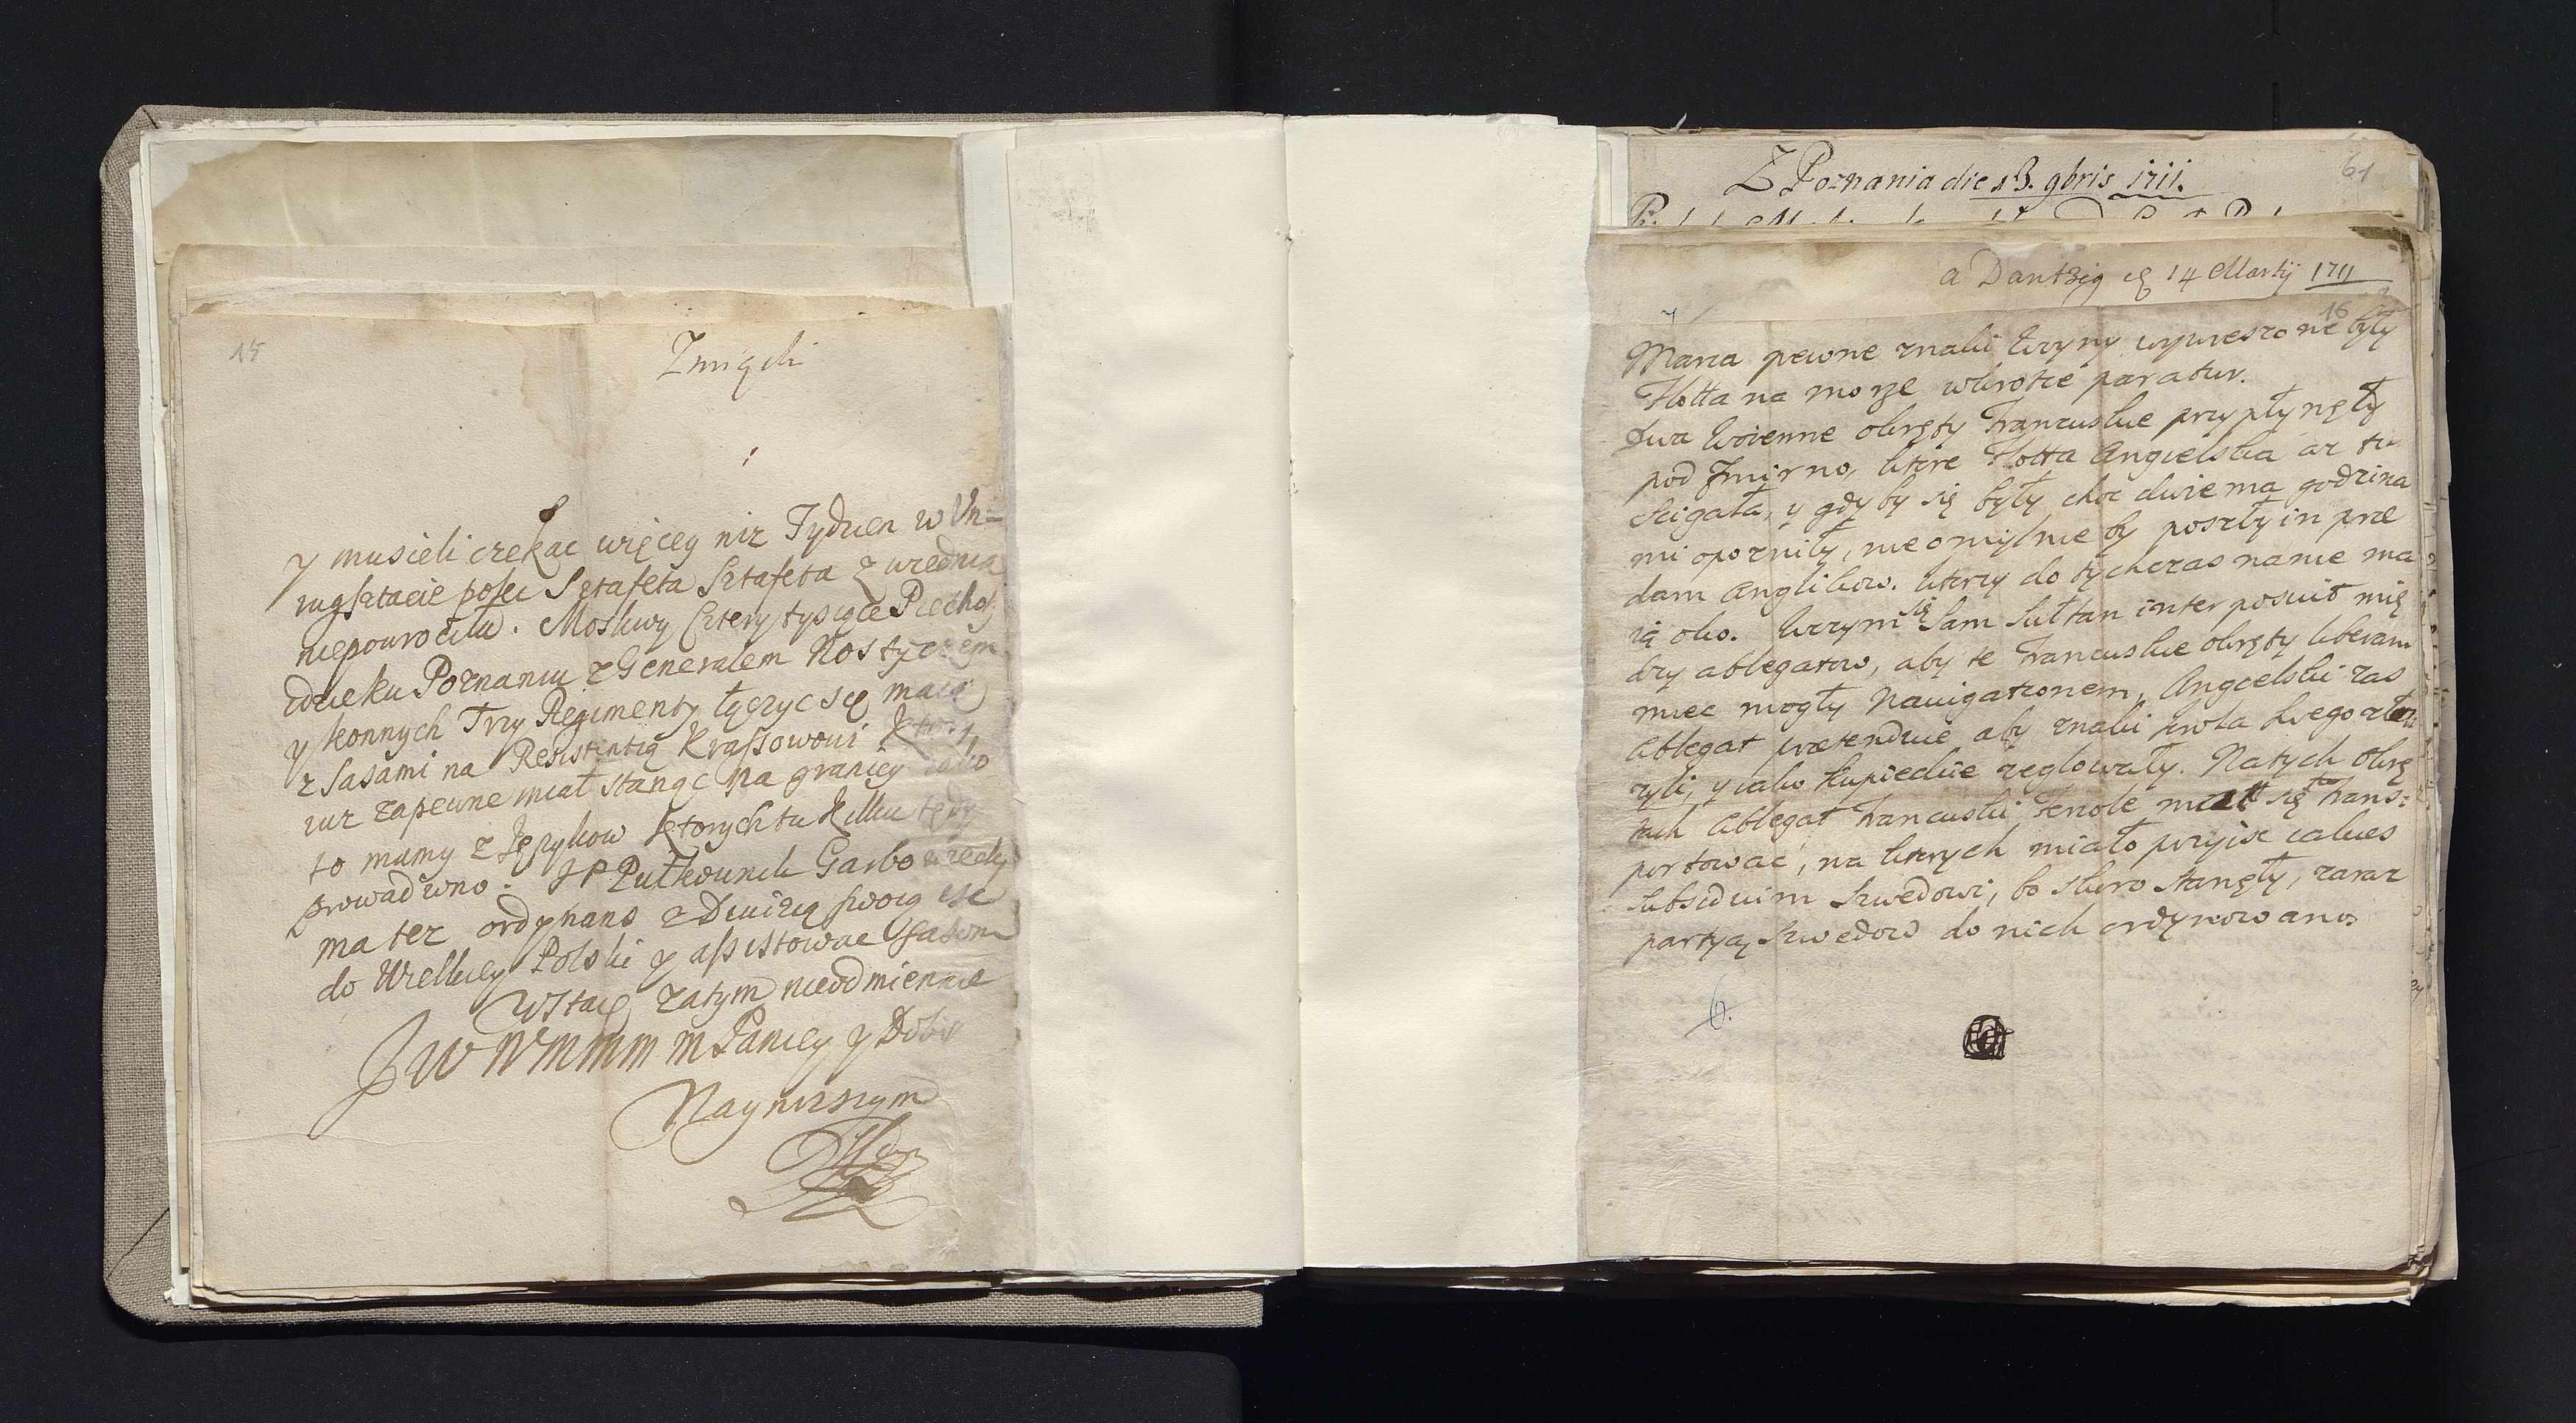 15
y musieli czekac więcey niz Tydzien w Vn=
rugſztacie poſeł Sztafeta Sztafeta z wrednia
niepowrociła. Moskwy Cztery tysiące Piechoty
idzie ku Poznaniu z Generałem Nostyczem
y konnych Trzy Regimenty łączyc się maią
z Sasami na Resistentią Kraſsowowi Ktory
iuz zapewne miał stanąc na granicy iako
to mamy z Językow Ktorych tu kilku tędy
prowadzono. JP Pułkownik Garbowiecki
ma tez ordynans z Dywizią swoią isc
do Wielkiey Polski y aſsistowac Sasom
Wstaię zatym nieodmiennie
JWWMMM M Paniey y Dobr
Naynizszym
Z Poznania die 13. 9bris 1711.
61
a Dantzig d 14 Martij 1711
16
Marca pewne znaki Woyny wywieszone były
Flotta na morze wkrotce paratur.
Dwa Woienne okręty Francuskie przypłynęły
pod Zmirno, ktore Flotta Angielska az tu
scigała, y gdyby się były choc dwiema godzina
mi opozniły, nieomylnie by poszły in præ
dam Anglikow. ktorzy do tychczas na nie ma
ią oko. Wczym się Sam Sułtan interposuit mię
dzy ablegatow, aby te Francuskie okręty liberam
miec mogły Nauigationem, Angielski zas
Ablegat prætenduie aby znaki krola swego złoz
zyli, y iako kupieckie zeglowały. Na tych Okrę
tach Ablegat Francuski Fenole miał się trans=
portowac, na ktorych miało przyisc iakies
subsidium Szwedowi, bo skoro stanęły, zaraz
partyą Szwedow do nich ordynowano.
6.